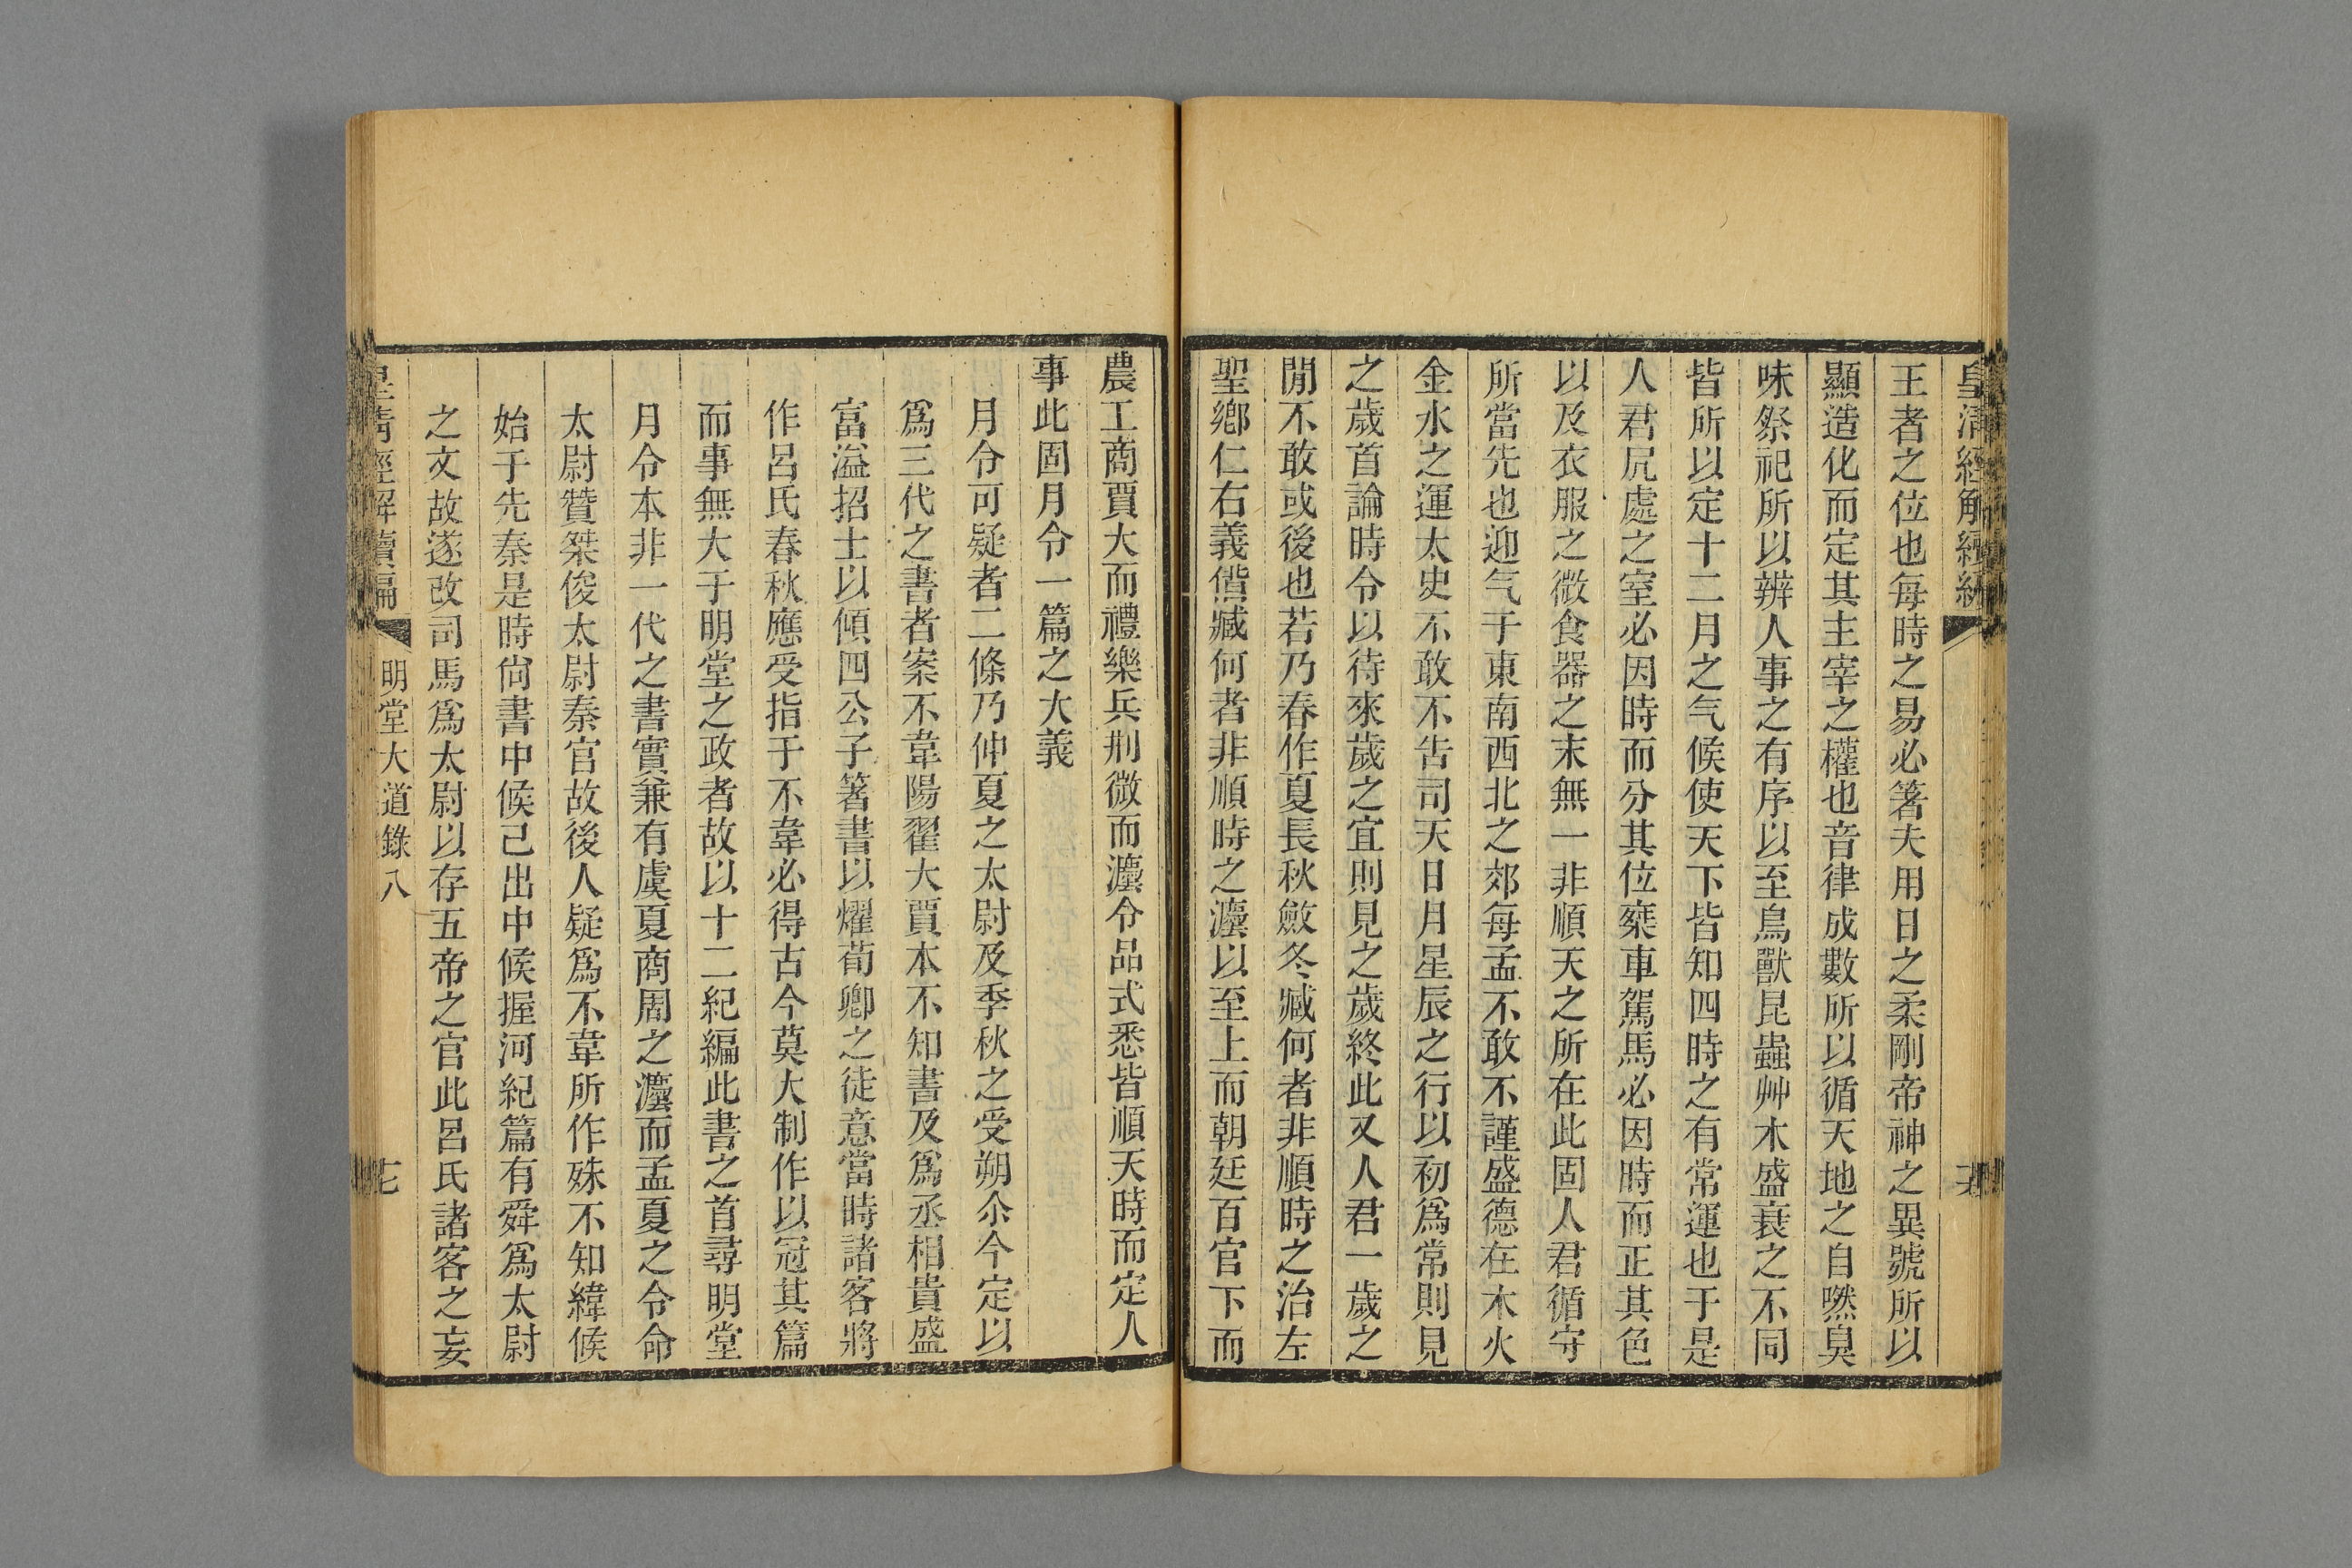 皇清經解續編
王者之位也每時之易必箸夫用日之柔剛帝神之異號所以
顯造化而定其主宰之權也音律成數所以循天地之自嘫臭
味祭祀所以辨人事之有序以至鳥獸昆蟲艸木盛衰之不同
皆所以定十二月之气候使天下皆知四時之有常運也于是
人君凥處之室必因時而分其位椉車駕馬必因時而正其色
以及衣服之微食器之末無一非順天之所在此固人君循守
所當先也迎气于東南西北之郊每孟不敢不謹盛德在木火
金水之運太史不敢不告司天日月星辰之行以初爲常則見
之歲首論時令以待來歲之宜則見之歲終此又人君一歲之
閒不敢或後也若乃春作夏長秋斂冬臧何者非順時之治左
聖鄉仁右義偝臧何者非順時之灋以至上而朝廷百官下而
農工商賈大而禮樂兵刑微而灋令品式悉皆順天時而定人
事此固月令一篇之大義
月令可疑者二條乃仲夏之太尉及季秋之受朔尒今定以
爲三代之書者案不韋陽翟大賈本不知書及爲丞相貴盛
富溢招士以傾四公子箸書以燿荀卿之徒意當時諸客將
作呂氏春秋應受指于不韋必得古今莫大制作以冠其篇
而事無大于明堂之政者故以十二紀編此書之首尋明堂
月令本非一代之書實兼有虞夏商周之灋而孟夏之令命
太尉贊桀俊太尉秦官故後人疑爲不韋所作殊不知緯候
始于先秦是時尙書中候已出中候握河紀篇有舜爲太尉
之文故遂改司馬爲太尉以存五帝之官此呂氏諸客之妄
皇清經解續編 明堂大道錄八